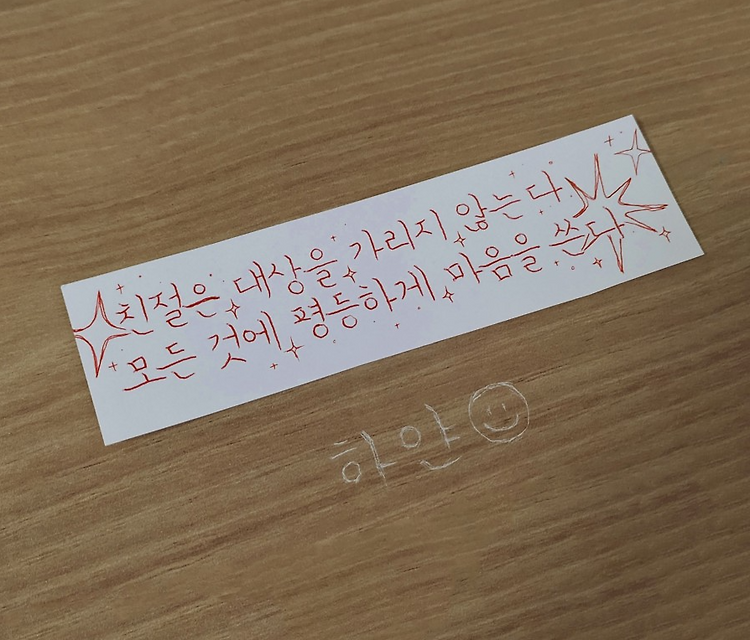 친절은 대상을 가리지 않는다
모든 것에 평등하게 마음을 쓴다
하얀